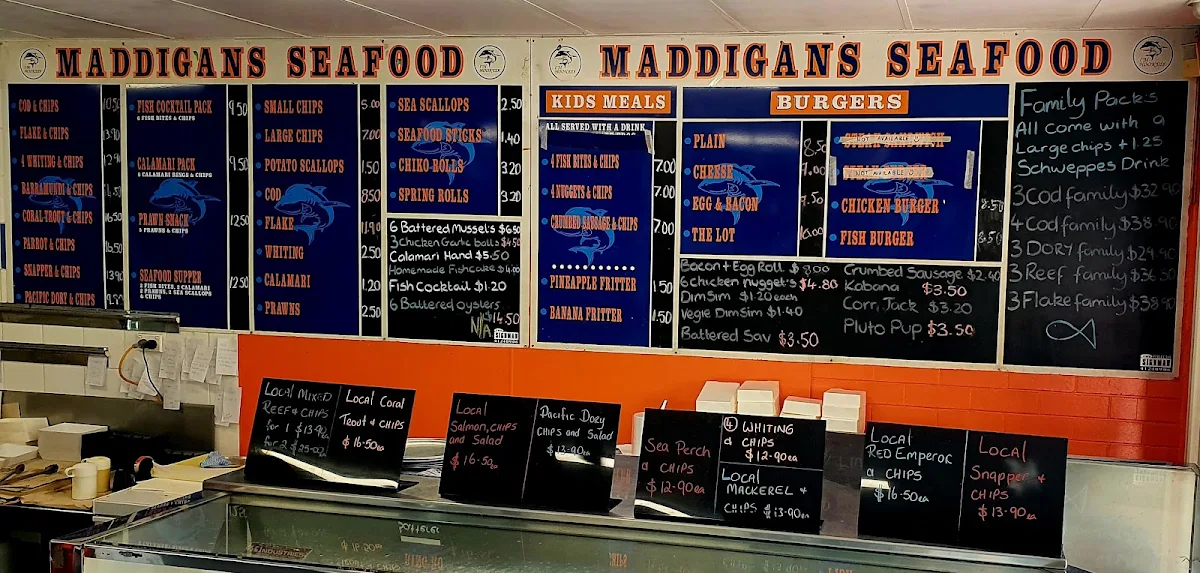 MADDIGANS SEAFOOD
COD & CHIPS 10.50
FLAKE & CHIPS 13.90
4 WHITING & CHIPS 12.90
BARRAMUNDI & CHIPS
CORAL TROUT & CHIPS 16.50
PARROT & CHIPS 16.50
SNAPPER & CHIPS 13.90
PACIFIC DORY & CHIPS
FISH COCKTAIL PACK 9.50
6 FISH BITES & CHIPS
CALAMARI PACK 9.50
6 CALAMARI RINGS & CHIPS
PRAWN SNACK 12.50
5 PRAWNS & CHIPS
SEAFOOD SUPPER
2 FISH BITES, 2 CALAMARI
2 PRAWNS, 2 SEA SCALLOPS
& CHIPS
SMALL CHIPS 5.00
LARGE CHIPS 7.00
POTATO SCALLOPS 1.50
COD 8.50
FLAKE 11.90
WHITING 2.50
CALAMARI 1.20
PRAWNS 2.50
SEA SCALLOPS 2.50
SEAFOOD STICKS 1.40
CHIKO ROLLS 3.20
SPRING ROLLS 3.20
6 Battered Mussel's $6.50
3 chicken Garlic balls $4.50
Calamari Hand $5.50
Homemade Fishcake $4.00
Fish Cocktail $1.20
6 Battered oysters
N/A $14.50
SIGNMAN
MADDIGANS SEAFOOD
KIDS MEALS
ALL SERVED WITH A DRINK
4 FISH BITES & CHIPS 7.00
4 NUGGETS & CHIPS 7.00
CRUMBED SAUSAGE & CHIPS 7.00
PINEAPPLE FRITTER 1.50
BANANA FRITTER 1.50
BURGERS
PLAIN 8.50
CHEESE 9.00
EGG & BACON 9.50
THE LOT 10.00
STEAK SANDWICH
NOT AVAILABLE
CHICKEN BURGER 8.50
FISH BURGER 8.50
Bacon + Egg Roll $8.00
6 chicken nugget's $4.80
Dim Sim $1.20 each
Vegie Dim Sim $1.40
Battered Sav $3.50
Crumbed Sausage $2.40
Kabana $3.50
Corn Jack $3.20
Pluto Pup $3.50
Family Packs
All come with a
Large chips + 1.25
Schweppes Drink
3 Cod family $32.90
4 Cod family $38.90
3 DORY family $29.90
3 Reef family $36.50
3 Flake family $38.90
SIGNMAN
Local Mixed
Reef & CHIPS
for 1 $13.90
for 2 $25.00
Local Coral
Trout & CHIPS
$16.50ea
Local
Salmon, CHIPS
and Salad
$16.50
Pacific Dory
CHIPS and Salad
$13.90ea
Sea Perch
& CHIPS
$12.90ea
④ WHITING
& CHIPS
$12.90ea
LOCAL
MACKEREL &
CHIPS $13.90ea
LOCAL
RED EMPEROR
& CHIPS
$16.50ea
Local
Snapper &
CHIPS
$13.90ea